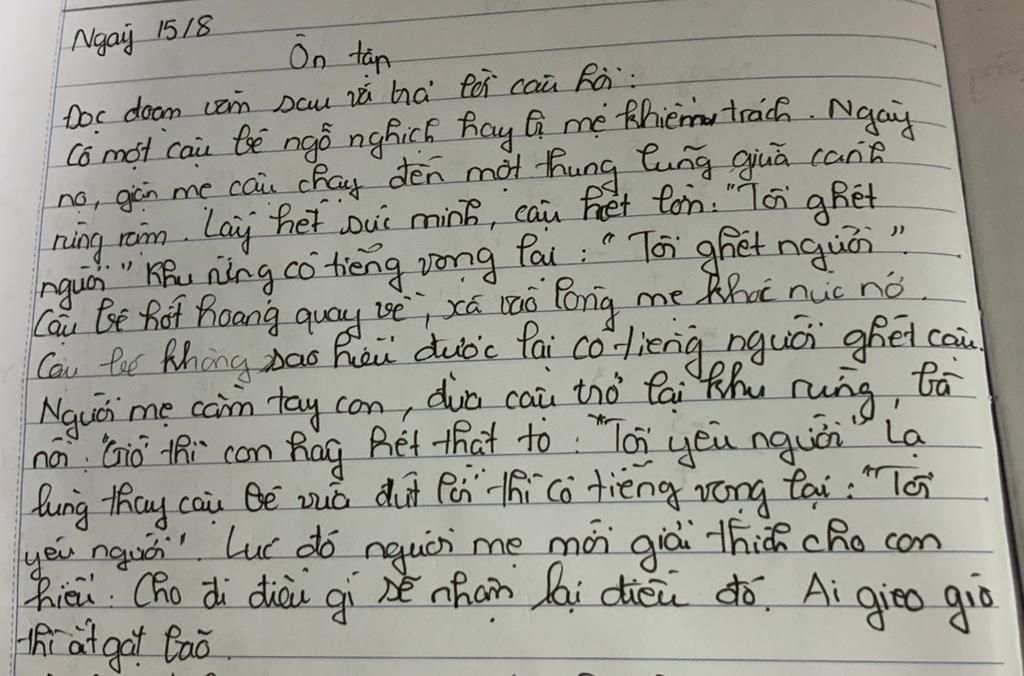 Ngày 15/8
Ôn tập
Đọc đoạn văn sau và trả lời câu hỏi:
Có một cậu bé ngỗ nghịch hay bị mẹ khiểm trách. Ngày
nọ, giận mẹ cậu chạy đến một thung lũng giữa cánh
rừng rậm. Lấy hết sức mình, cậu hét lớn: "Tôi ghét
người" Khu rừng có tiếng vọng lại: "Tôi ghét người".
Cậu bé hốt hoảng quay về, xà vào lòng mẹ khóc nức nở.
Cậu bé không sao hiểu được lại có tiếng người ghét cậu.
Người mẹ cầm tay con, đưa cậu trở lại khu rừng, bà
nói: "Giờ thì con hãy hét thật to: "Tôi yêu người" Lạ
lùng thay cậu bé vừa dứt lời thì có tiếng vọng lại: "Tôi
yêu người". Lúc đó người mẹ mới giải thích cho con
hiểu: Cho đi điều gì sẽ nhận lại điều đó. Ai gieo gió
thì ắt gặt bão.